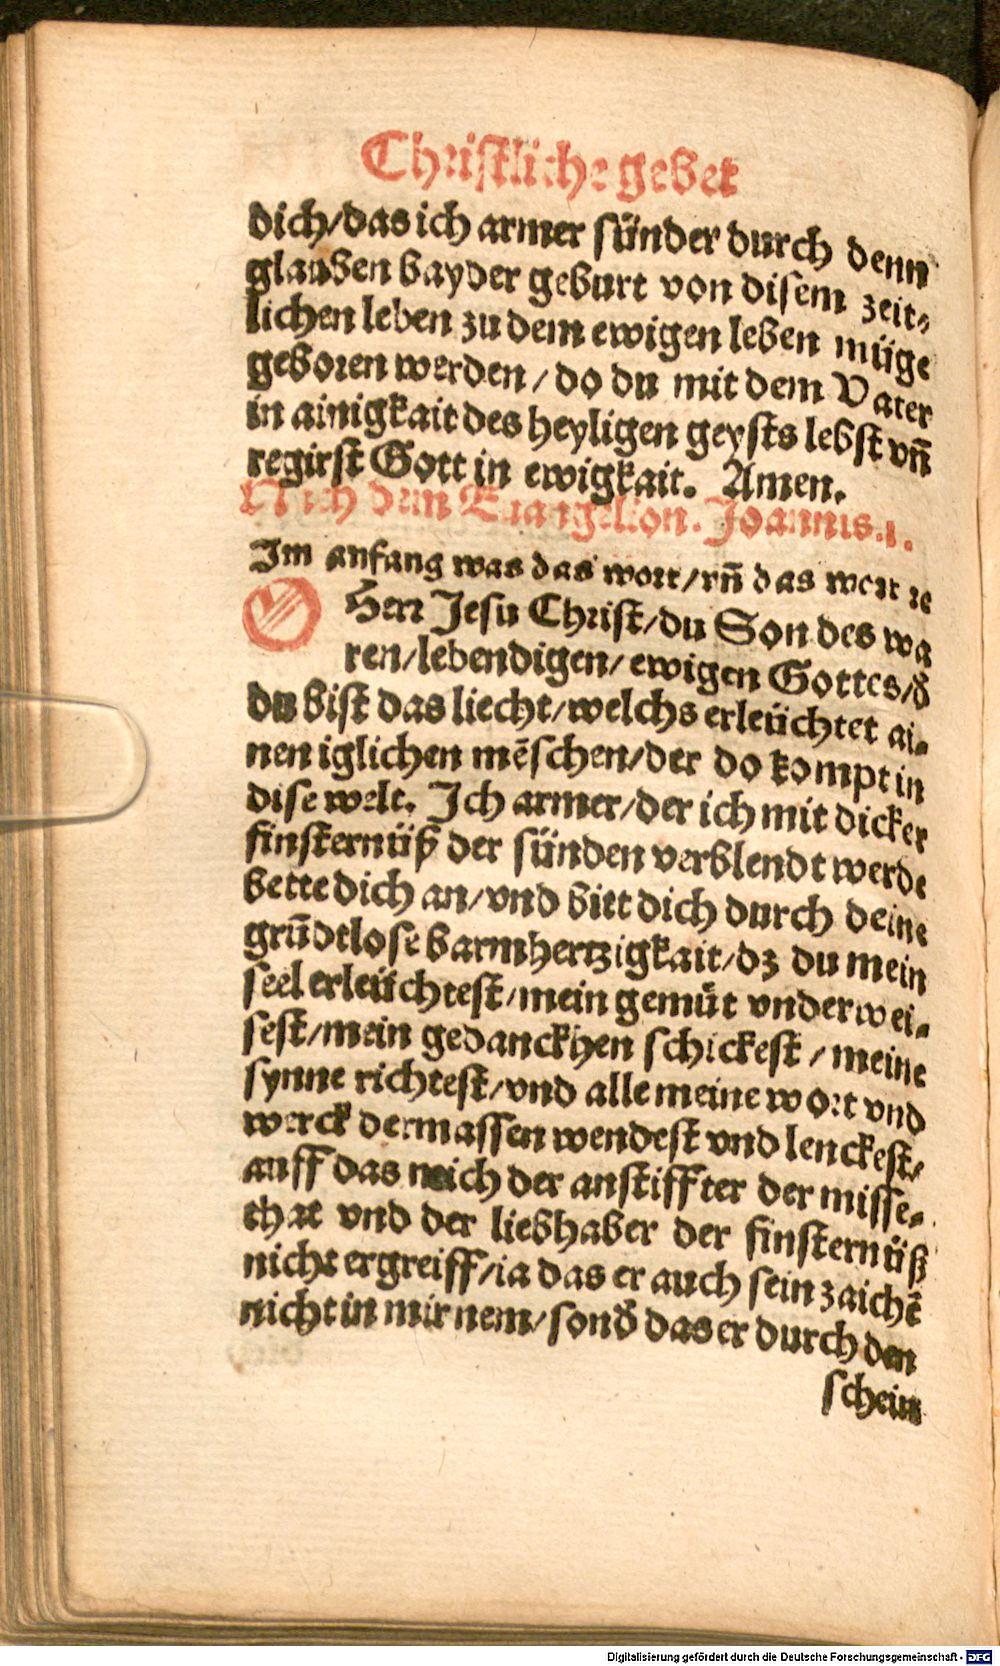 Christliche gebet
dich/das ich armer sünder durch denn
glauben bayder geburt von disem zeit⸗
lichen leben zu dem ewigen leben müge
geboren werden/do du mit dem Vater
in ainigkait des heyligen geysts lebst vñ
regirst Gott in ewigkait. Amen.
Nach dem Euangelion. Joannis.1.
Im anfang was das wort/vñ das wort ꝛc
O Herr Jesu Christ/du Son des wa
ren/lebendigen/ewigen Gottes/d̕
du bist das liecht/welchs erleüchtet ai⸗
nen iglichen mẽschen/der do kompt in
dise welt. Ich armer/der ich mit dicker
finsternüß der sünden verblendt werde
bette dich an/vnd bitt dich durch deine
grũdtlose barmhertzigkait/dz du mein
seel erleüchtest/mein gemüt vnderwei⸗
sest/mein gedanckhen schickest/meine
synne richtest/vnd alle meine wort vnd
werck dermassen wendest vnd lenckest/
auff das mich der anstiffter der misse⸗
that vnd der liebhaber der finsternüß
nicht ergreiff/ia das er auch sein zaichẽ
nicht in mir nem/sond̕ das er durch den
schein
Digitalisierung gefördert durch die Deutsche Forschungsgemeinschaft - DFG